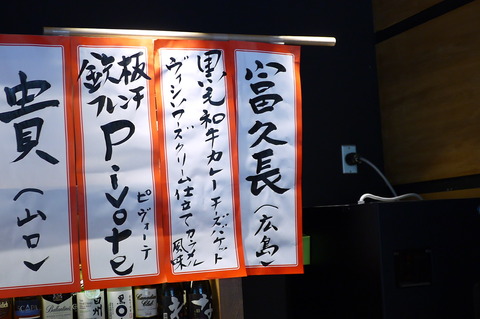 富久長(広島)
黒毛和牛カレーチーズバゲット
ヴィシソワーズクリーム仕立てカラメル風味
鉄板フレンチ
Pivote
ピヴォーテ
貴(山口)